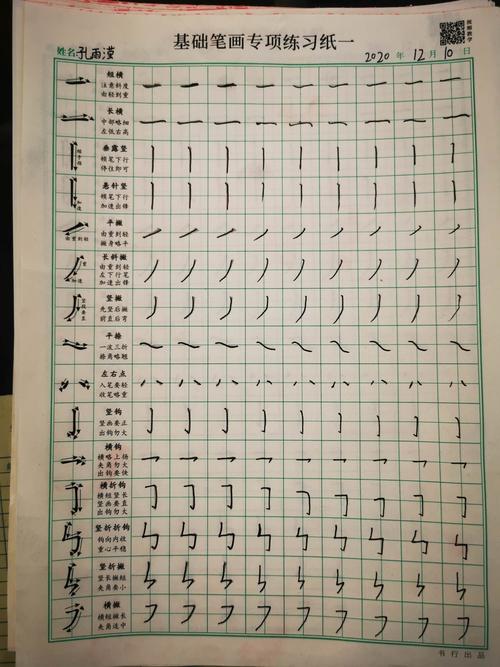 视频教学
基础笔画专项练习纸一
姓名:孔雨滢 2020年12月10日
短横
注意斜度
由轻到重
长横
中部略细
左低右高
垂露竖
顿笔下行
停住即可
悬针竖
顿笔下行
加速出锋
加速
平撇
由重到轻
撇身略平
由重到轻
长斜撇
由重到轻
左下行笔
加速出锋
加速
竖撇
先竖后撇
前直后弯
平捺
一波三折
捺角略翘
左右点
入笔要轻
收笔略重
竖钩
竖画要正
出钩勿大
横钩
横略上扬
夹角勿大
出钩要快
横折钩
横短竖长
竖画要直
出钩勿大
竖折折钩
钩向内收
重心平稳
竖折撇
竖长撇短
夹角要小
横撇
横短撇长
夹角适中
书行出品